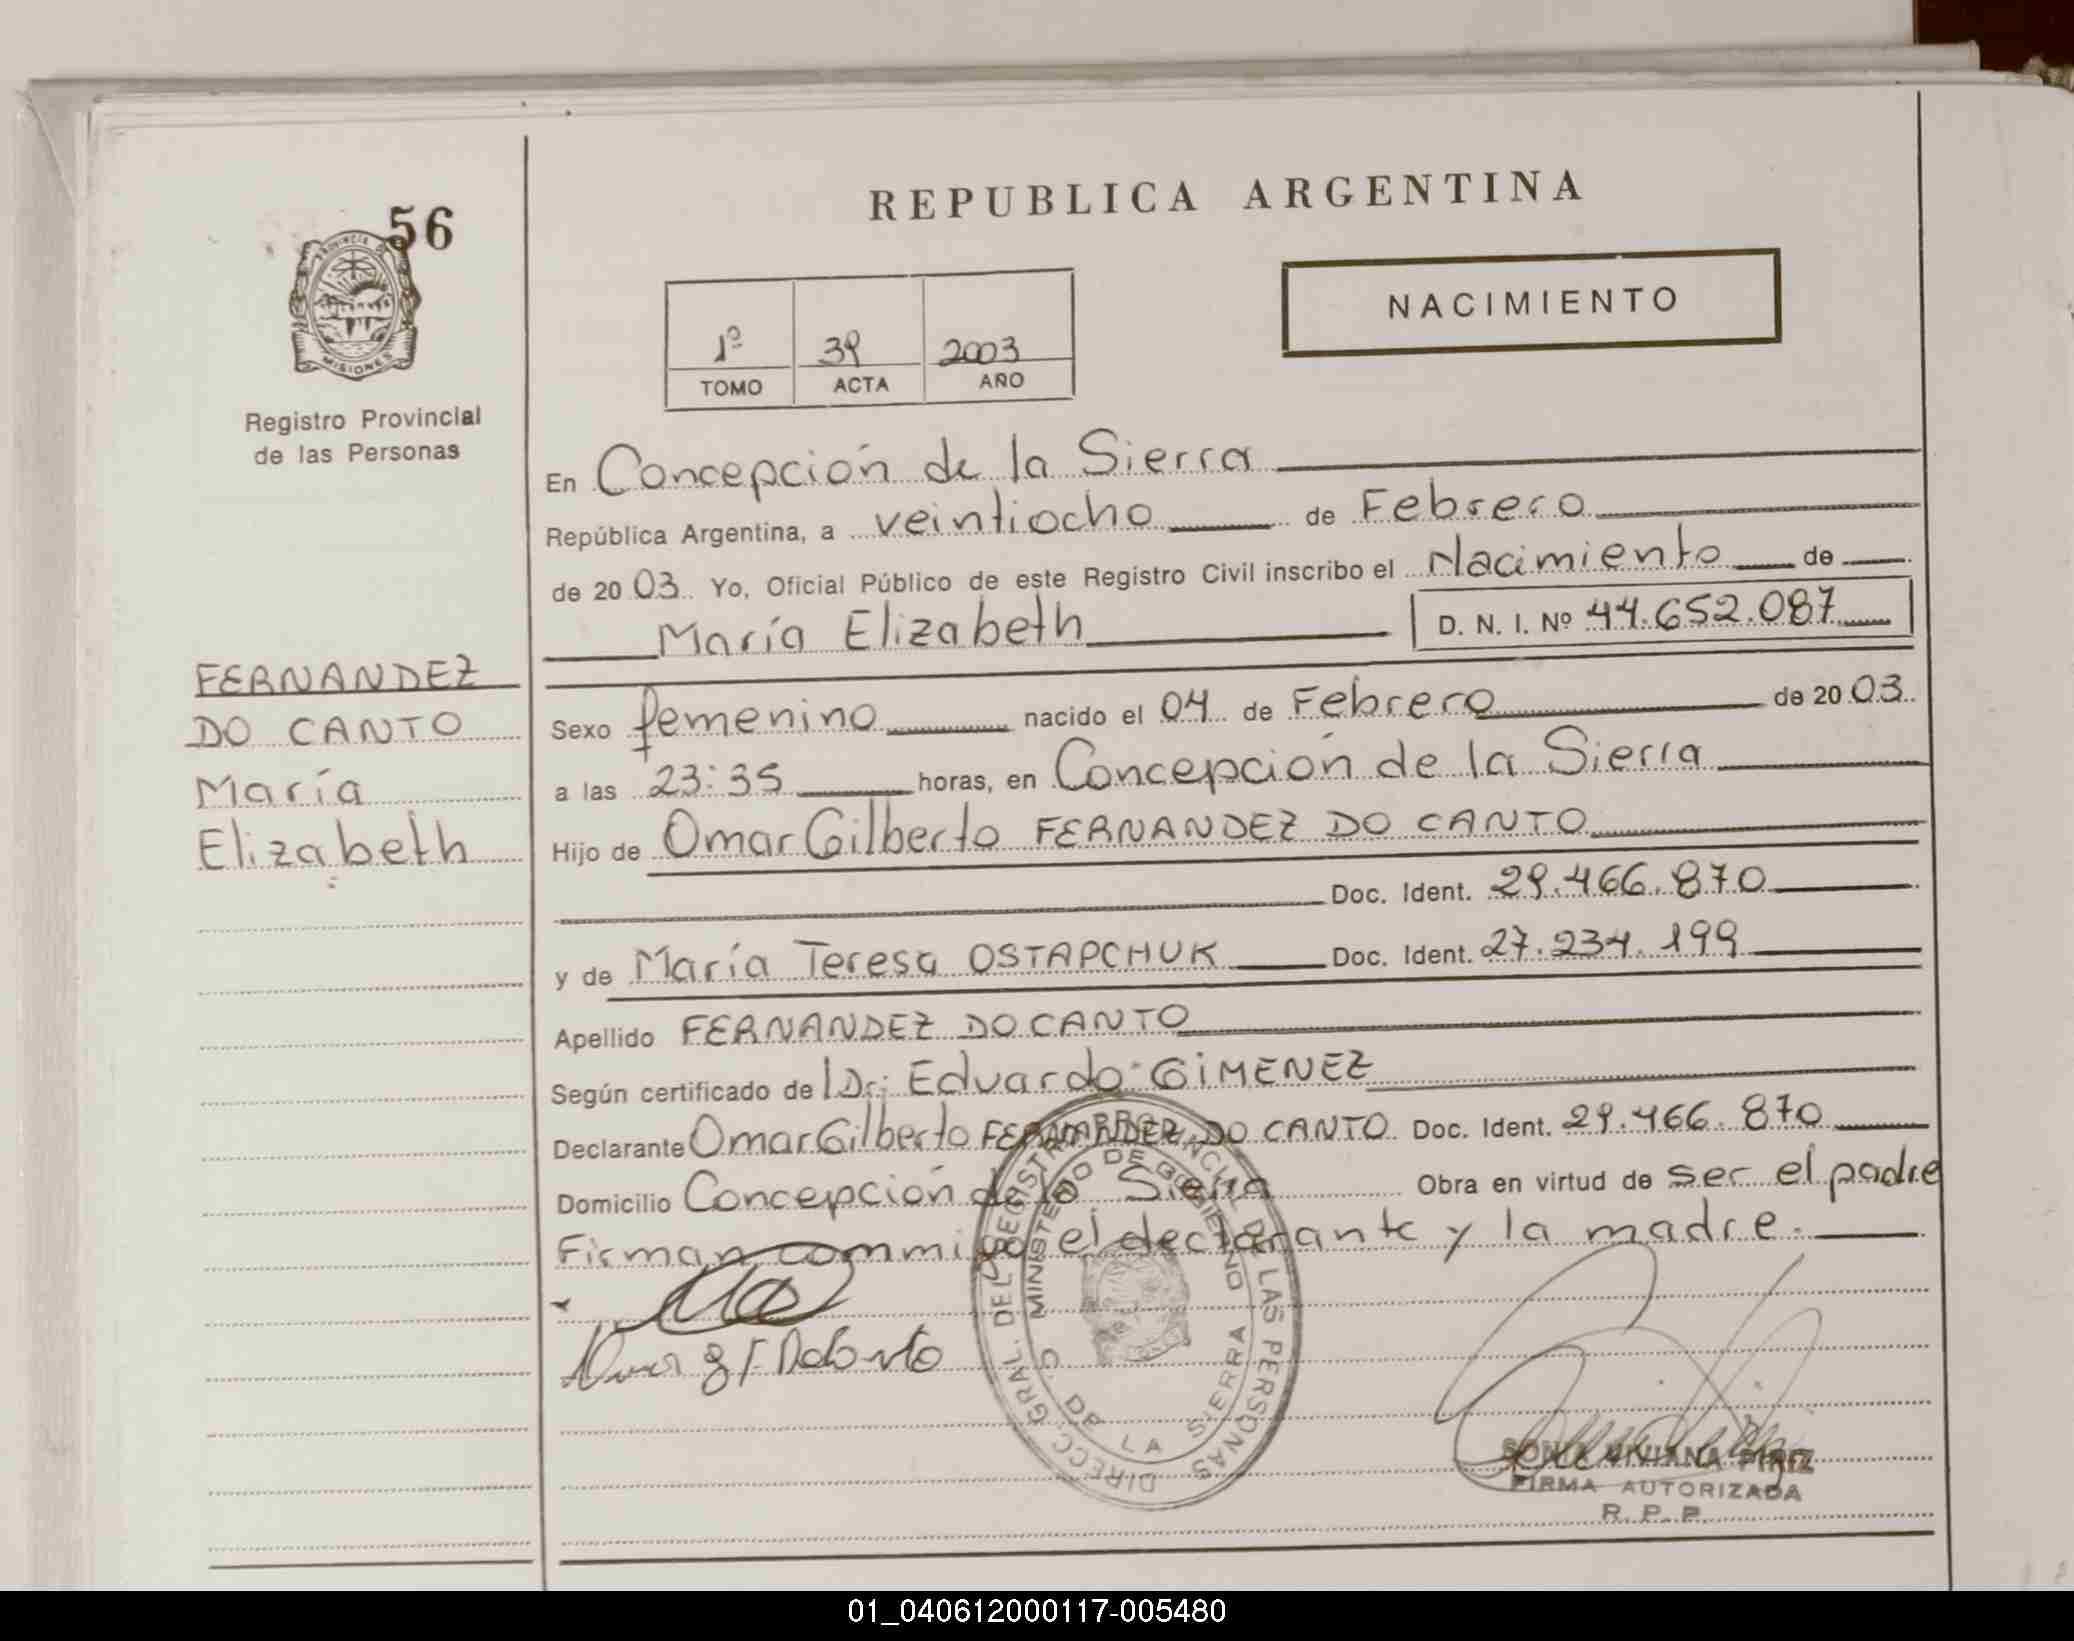 56
PROVINCIA DE
MISIONES
Registro Provincial
de las Personas
FERNANDEZ
DO CANTO
María
Elizabeth
REPUBLICA ARGENTINA
NACIMIENTO
1º 39 2003
TOMO ACTA AÑO
En Concepción de la Sierra
República Argentina, a veintiocho de Febrero
de 2003. Yo, Oficial Público de este Registro Civil inscribo el Nacimiento de
María Elizabeth D. N. I. Nº 44.652.087
Sexo femenino nacido el 04 de Febrero de 2003.
a las 23:35 horas, en Concepción de la Sierra
Hijo de Omar Gilberto FERNANDEZ DO CANTO
Doc. Ident. 29.466.870
y de María Teresa OSTAPCHUK Doc. Ident. 27.234.199
Apellido FERNANDEZ DO CANTO
Según certificado de Dr: Eduardo GIMENEZ
Declarante Omar Gilberto FERNANDEZ DO CANTO Doc. Ident. 29.466.870
Domicilio Concepción de la Sierra Obra en virtud de ser el padre
Firman conmigo el declarante y la madre.
DIRECC. GRAL. DEL REGISTRO PROVINCIAL DE LAS PERSONAS
MINISTERIO DE GOBIERNO
C. DE LA SIERRA
SONIA VIVIANA PIRIZ
FIRMA AUTORIZADA
R. P. P.
01_040612000117-005480